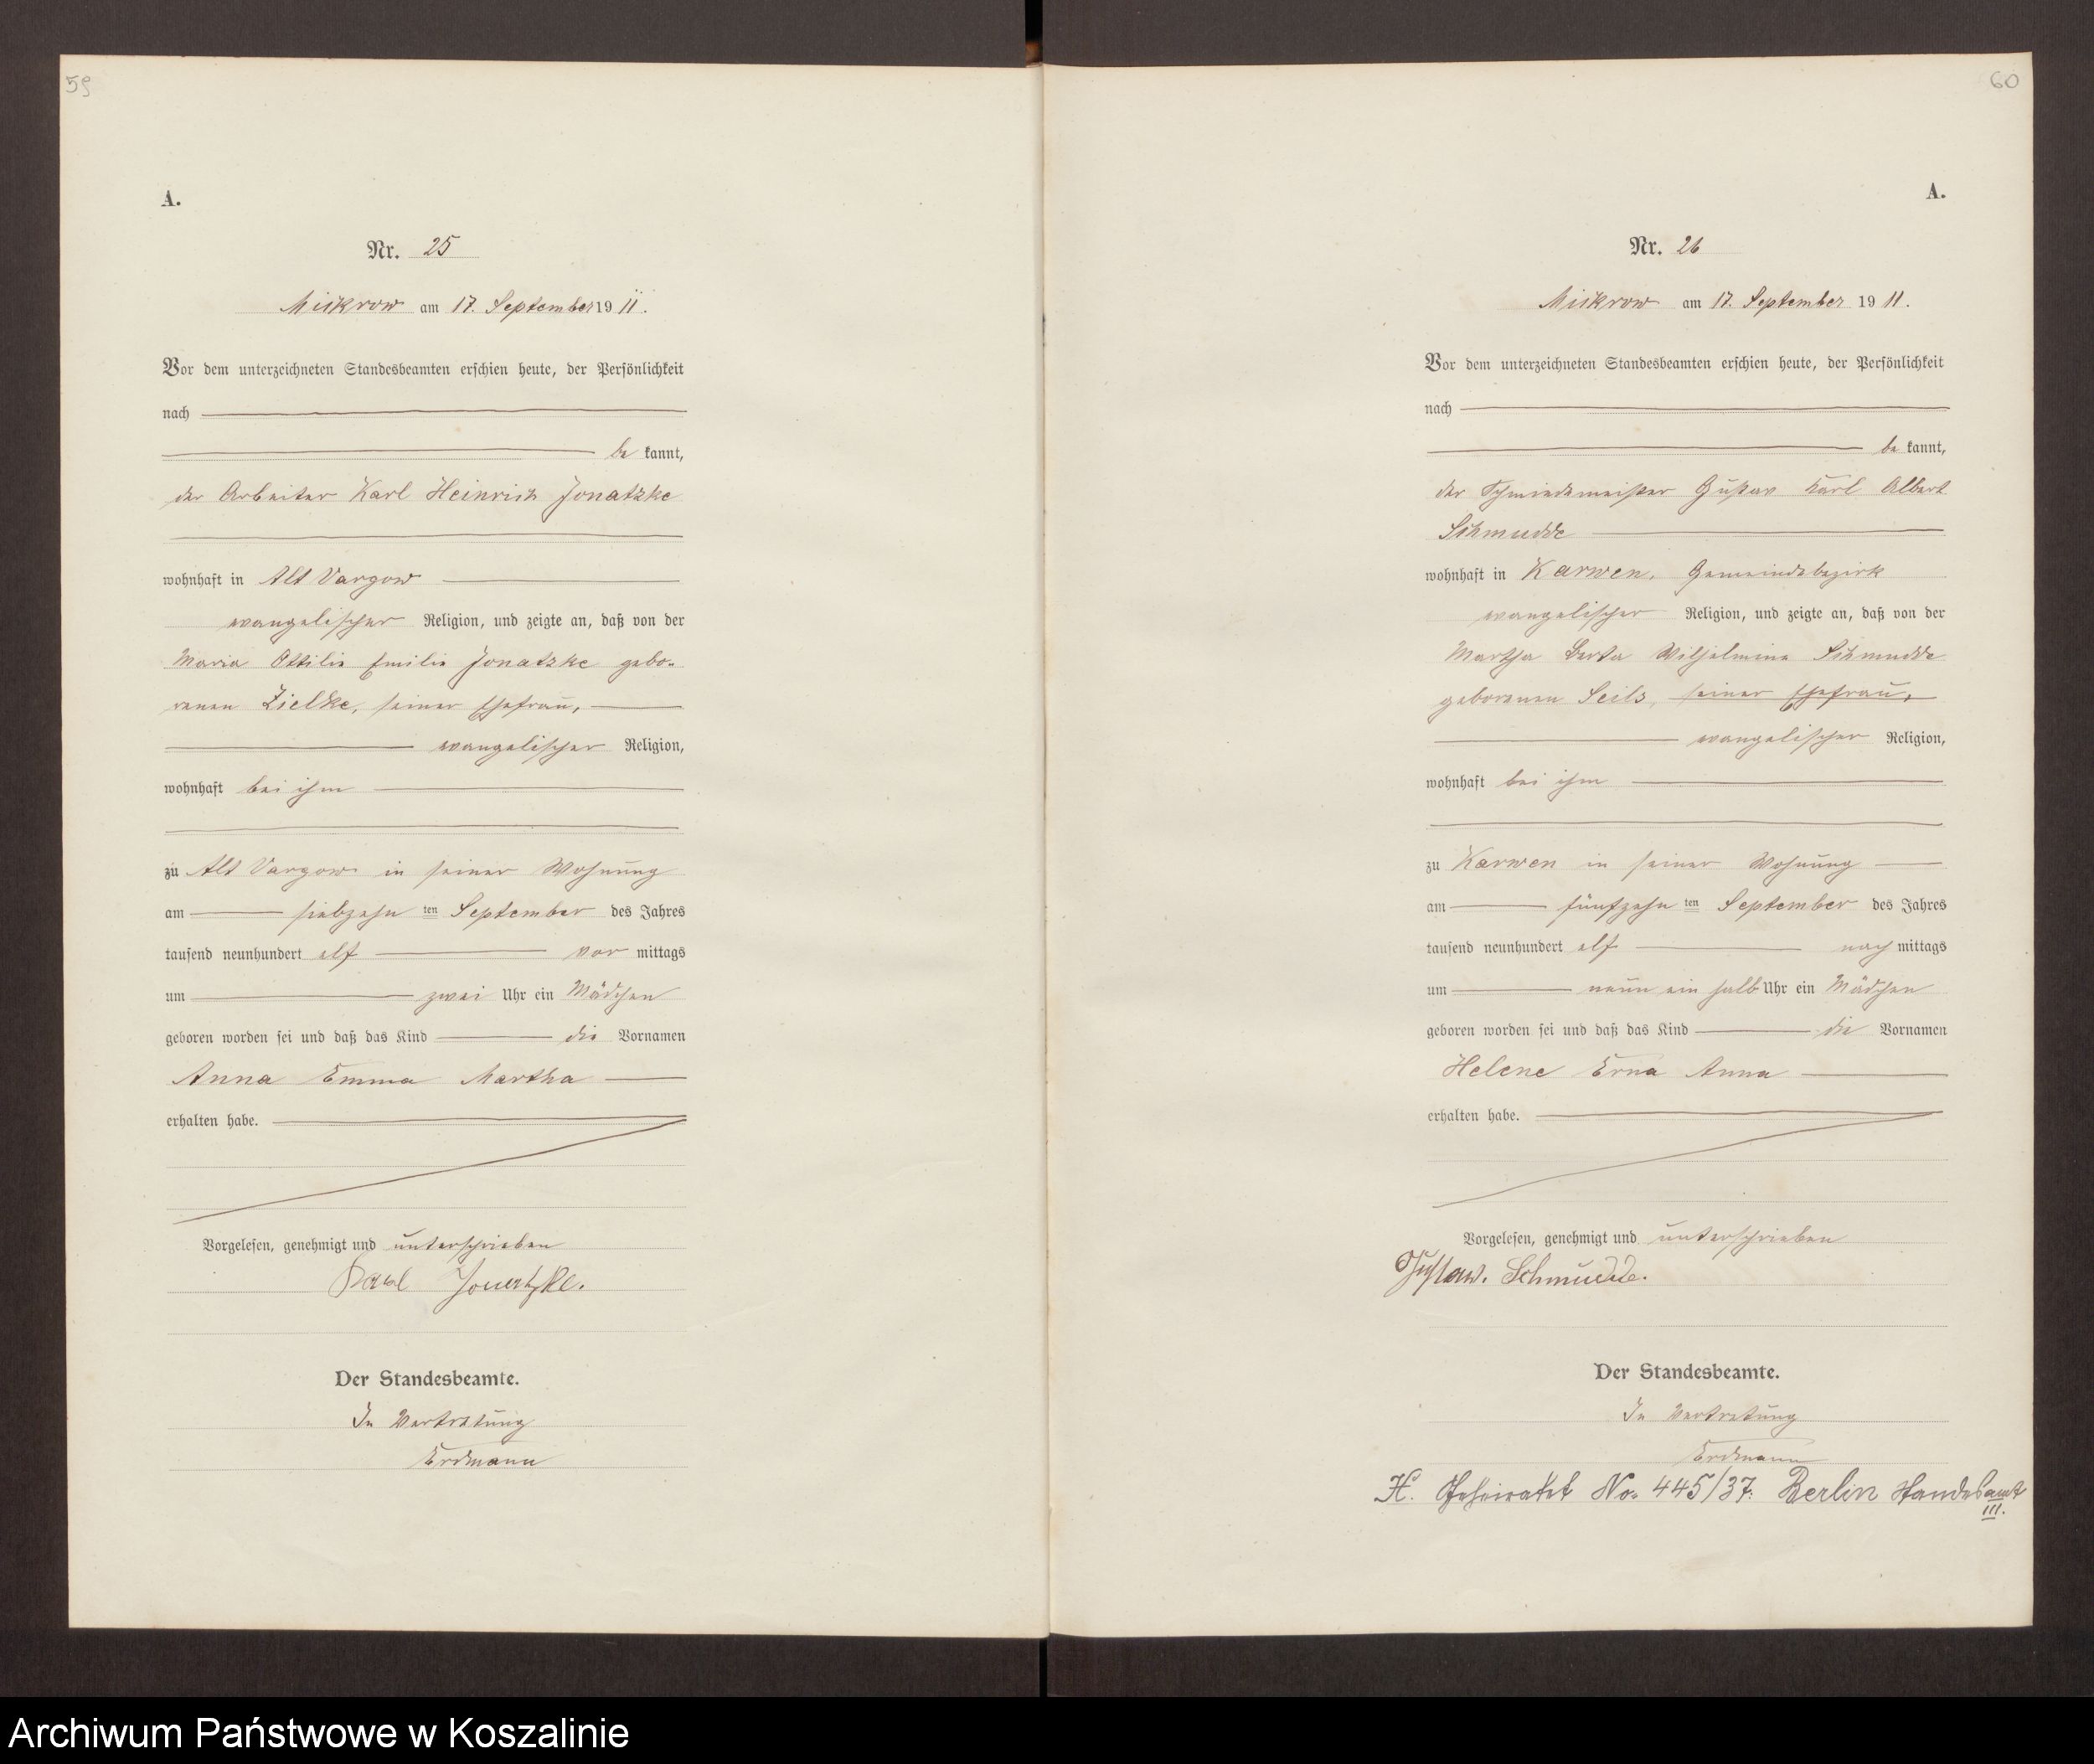 59
A.
Nr. 25
Mickrow am 17. September 1911.
Vor dem unterzeichneten Standesbeamten erschien heute, der Persönlichkeit
nach
be kannt,
der Arbeiter Karl Heinrich Jonatzke
wohnhaft in Alt Vargow
evangelischer Religion, und zeigte an, daß von der
Maria Ottilie Emilie Jonatzke gebo-
renen Zielke, seiner Ehefrau,
evangelischer Religion,
wohnhaft bei ihm
zu Alt Vargow in seiner Wohnung
am siebzehn ten September des Jahres
tausend neunhundert elf vor mittags
um zwei Uhr ein Mädchen
geboren worden sei und daß das Kind die Vornamen
Anna Emma Martha
erhalten habe.
Vorgelesen, genehmigt und unterschrieben
Karl Jonatzke.
Der Standesbeamte.
In Vertretung
Erdmann
60
A.
Nr. 26
Mickrow am 17. September 1911.
Vor dem unterzeichneten Standesbeamten erschien heute, der Persönlichkeit
nach
be kannt,
der Schmiedemeister Gustav Karl Albert
Schmudde
wohnhaft in Karwen, Gemeindebezirk
evangelischer Religion, und zeigte an, daß von der
Martha Berta Wilhelmine Schmudde
geborenen Seils, seiner Ehefrau,
evangelischer Religion,
wohnhaft bei ihm
zu Karwen in seiner Wohnung
am fünfzehn ten September des Jahres
tausend neunhundert elf nach mittags
um neun ein halb Uhr ein Mädchen
geboren worden sei und daß das Kind die Vornamen
Helene Erna Anna
erhalten habe.
Vorgelesen, genehmigt und unterschrieben
Gustaw. Schmudde.
Der Standesbeamte.
In Vertretung
Erdmann
H. Geheiratet No. 445/37. Berlin Standesamt
III.
Archiwum Państwowe w Koszalinie